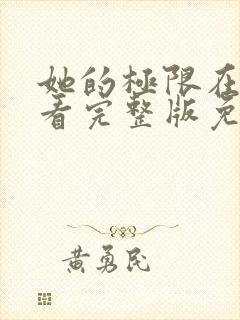 她的極限在
看完整版免
黃勇民